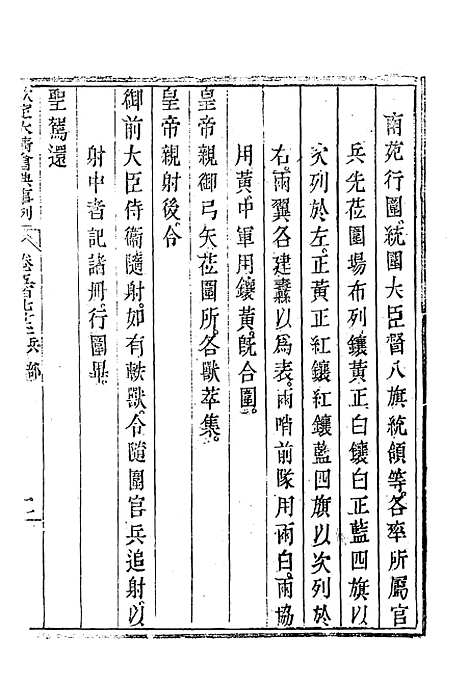 南苑行圍統圍大臣督八旗統領等各率所屬官
兵先莅圍場布列鑲黃正白鑲白正藍四旗以
次列於左正黃正紅鑲紅鑲藍四旗以次列於
右兩翼各建纛以為表兩哨前隊用兩白兩協
用黃中軍用鑲黃旣合圍
皇帝親御弓矢莅圍所各獸萃集
皇帝親射後令
御前大臣侍衞隨射如有軼獸令隨圍官兵追射以
射中者記諸册行圍畢
聖駕還
欽定大清會典事例 卷 兵部 二